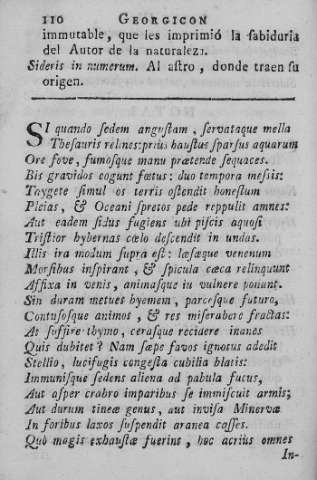 110 GEORGICON
immutable, que les imprimió la sabiduria
del Autor de la naturaleza.
Sideris in numerum. Al astro, donde traen su
origen.
SI quando sedem angustam, servataque mella
Thesauris relines: prius haustus sparsus aquarum
Ore fove, fumosque manu prætende sequaces.
Bis gravidos cogunt fœtus: duo tempora messis:
Taygete simul os terris ostendit honestum
Pleias, & Oceani spretos pede reppulit amnes:
Aut eadem sidus fugiens ubi piscis aquosi
Tristior hybernas cœlo descendit in undas.
Illis ira modum supra est: læsæque venenum
Morsibus inspirant, & spicula cæca relinquunt
Affixa in venis, animasque in vulnere ponunt.
Sin duram metues hyemem, parcesque futuro,
Contusosque animos, & res miserabere fractas:
At suffire thymo, cerasque recidere inanes
Quis dubitet? Nam sæpe favos ignotus adedit
Stellio, lucifugis congesta cubilia blatis:
Immunisque sedens aliena ad pabula fucus,
Aut asper crabro imparibus se immiscuit armis;
Aut durum tineæ genus, aut invisa Minervæ
In foribus laxos suspendit aranea casses.
Quò magis exhaustæ fuerint, hoc acriùs omnes
In-